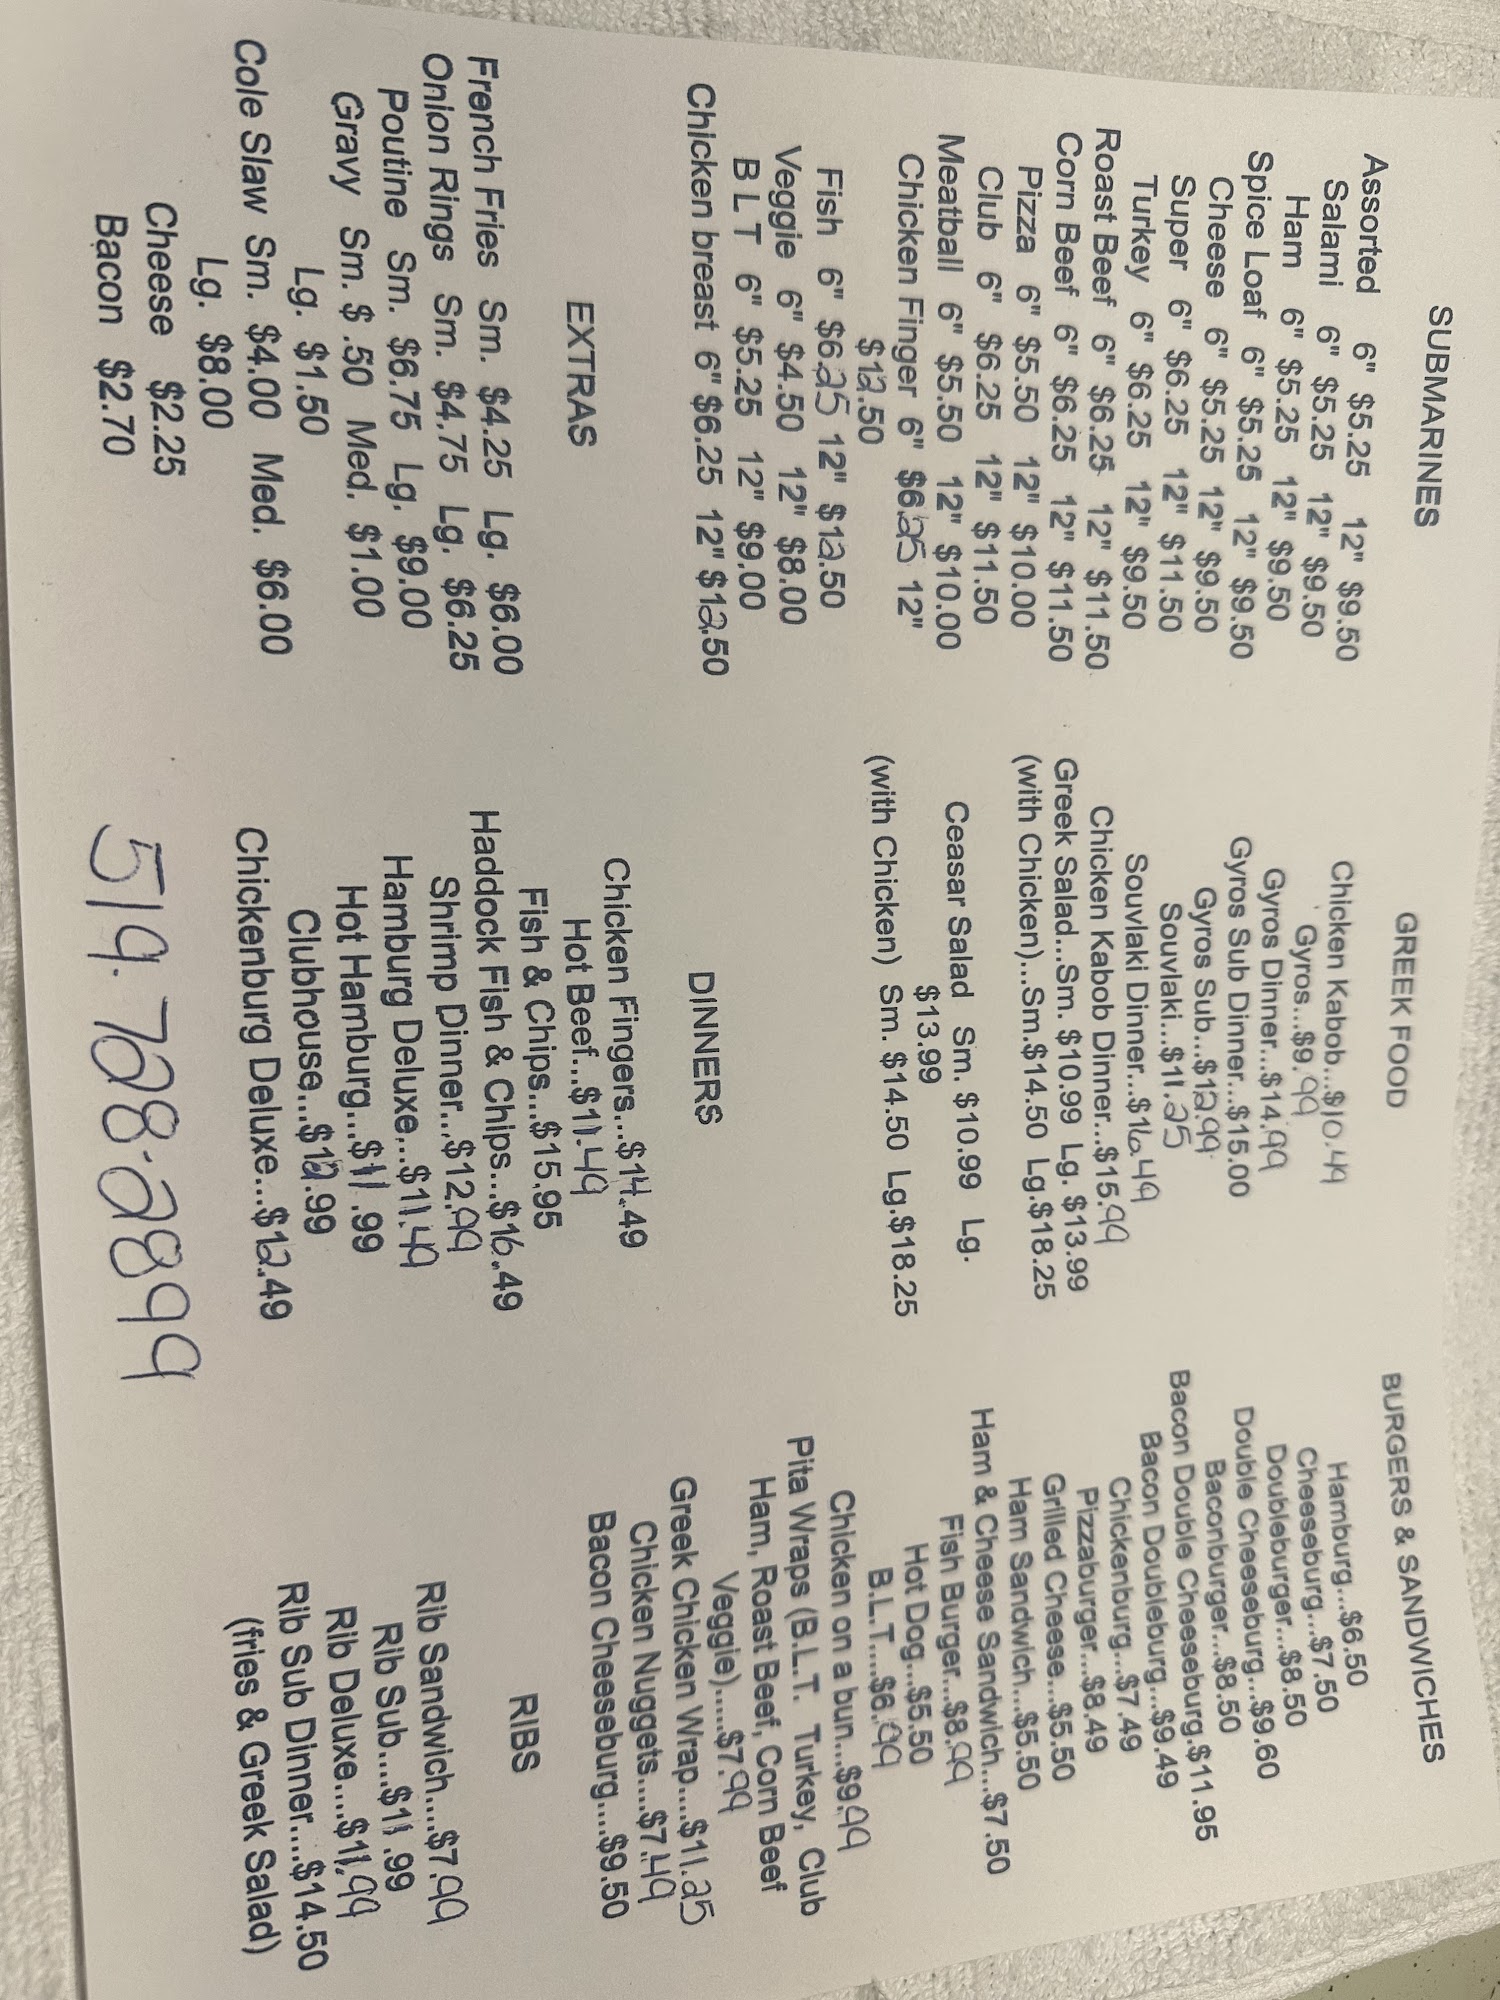 SUBMARINES
Assorted 6" $5.25 12" $9.50
Salami 6" $5.25 12" $9.50
Ham 6" $5.25 12" $9.50
Spice Loaf 6" $5.25 12" $9.50
Cheese 6" $5.25 12" $9.50
Super 6" $6.25 12" $11.50
Turkey 6" $6.25 12" $9.50
Roast Beef 6" $6.25 12" $11.50
Corn Beef 6" $6.25 12" $11.50
Pizza 6" $5.50 12" $10.00
Club 6" $6.25 12" $11.50
Meatball 6" $5.50 12" $10.00
Chicken Finger 6" $6.25 12"
$12.50
Fish 6" $6.25 12" $12.50
Veggie 6" $4.50 12" $8.00
B L T 6" $5.25 12" $9.00
Chicken breast 6" $6.25 12" $12.50
EXTRAS
French Fries Sm. $4.25 Lg. $6.00
Onion Rings Sm. $4.75 Lg. $6.25
Poutine Sm. $6.75 Lg. $9.00
Gravy Sm. $ .50 Med. $1.00
Lg. $1.50
Cole Slaw Sm. $4.00 Med. $6.00
Lg. $8.00
Cheese $2.25
Bacon $2.70
GREEK FOOD
Chicken Kabob...$10.49
Gyros...$9.99
Gyros Dinner...$14.99
Gyros Sub Dinner...$15.00
Gyros Sub...$12.99
Souvlaki...$11.25
Souvlaki Dinner...$16.49
Chicken Kabob Dinner...$15.99
Greek Salad...Sm. $10.99 Lg. $13.99
(with Chicken)...Sm.$14.50 Lg.$18.25
Ceasar Salad Sm. $10.99 Lg.
$13.99
(with Chicken) Sm. $14.50 Lg.$18.25
DINNERS
Chicken Fingers...$14.49
Hot Beef...$11.49
Fish & Chips...$15.95
Haddock Fish & Chips...$16.49
Shrimp Dinner...$12.99
Hamburg Deluxe...$11.49
Hot Hamburg...$11.99
Clubhouse...$12.99
Chickenburg Deluxe...$12.49
519.728.2899
BURGERS & SANDWICHES
Hamburg...$6.50
Cheeseburg...$7.50
Doubleburger...$8.50
Double Cheeseburg...$9.60
Baconburger...$8.50
Bacon Double Cheeseburg.$11.95
Bacon Doubleburg...$9.49
Chickenburg...$7.49
Pizzaburger...$8.49
Grilled Cheese...$5.50
Ham Sandwich...$5.50
Ham & Cheese Sandwich...$7.50
Fish Burger...$8.99
Hot Dog...$5.50
B.L.T....$6.99
Chicken on a bun...$9.99
Pita Wraps (B.L.T. Turkey, Club
Ham, Roast Beef, Corn Beef
Veggie).....$7.99
Greek Chicken Wrap....$11.25
Chicken Nuggets....$7.49
Bacon Cheeseburg....$9.50
RIBS
Rib Sandwich....$7.99
Rib Sub....$11.99
Rib Deluxe....$11.99
Rib Sub Dinner....$14.50
(fries & Greek Salad)